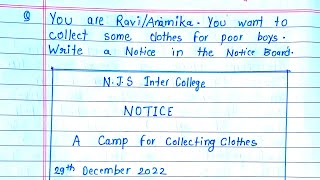 Q You are Ravi/Anamika. You want to
collect some clothes for poor boys.
Write a Notice in the Notice Board.
N.J.S Inter College
NOTICE
A Camp for Collecting Clothes
29th December 2022